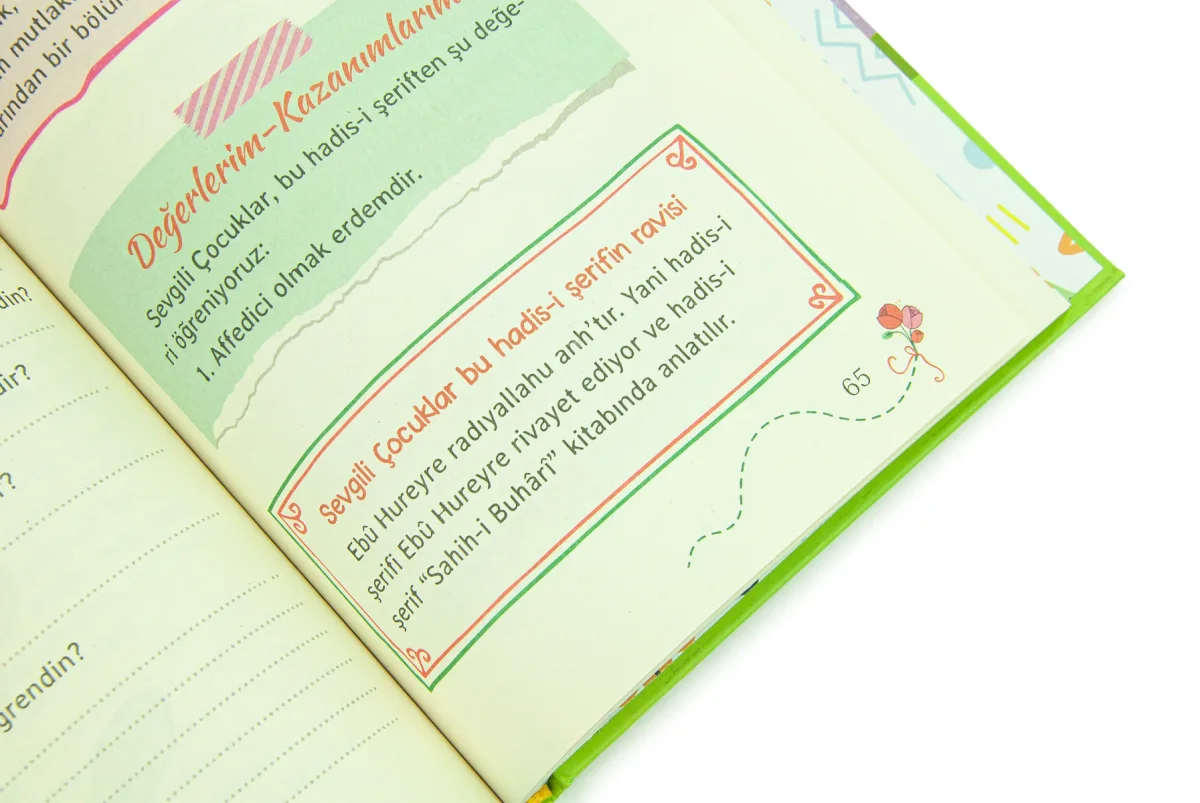 n mutlak
arından bir bölün
din?
dir?
r?
ğrendin?
Değerlerim-Kazanımlarım
Sevgili Çocuklar, bu hadis-i şeriften şu değe-
ri öğreniyoruz:
1. Affedici olmak erdemdir.
Sevgili Çocuklar bu hadis-i şerifin ravisi
Ebû Hureyre radıyallahu anh’tır. Yani hadis-i
şerifi Ebû Hureyre rivayet ediyor ve hadis-i
şerif “Sahih-i Buhârî” kitabında anlatılır.
65